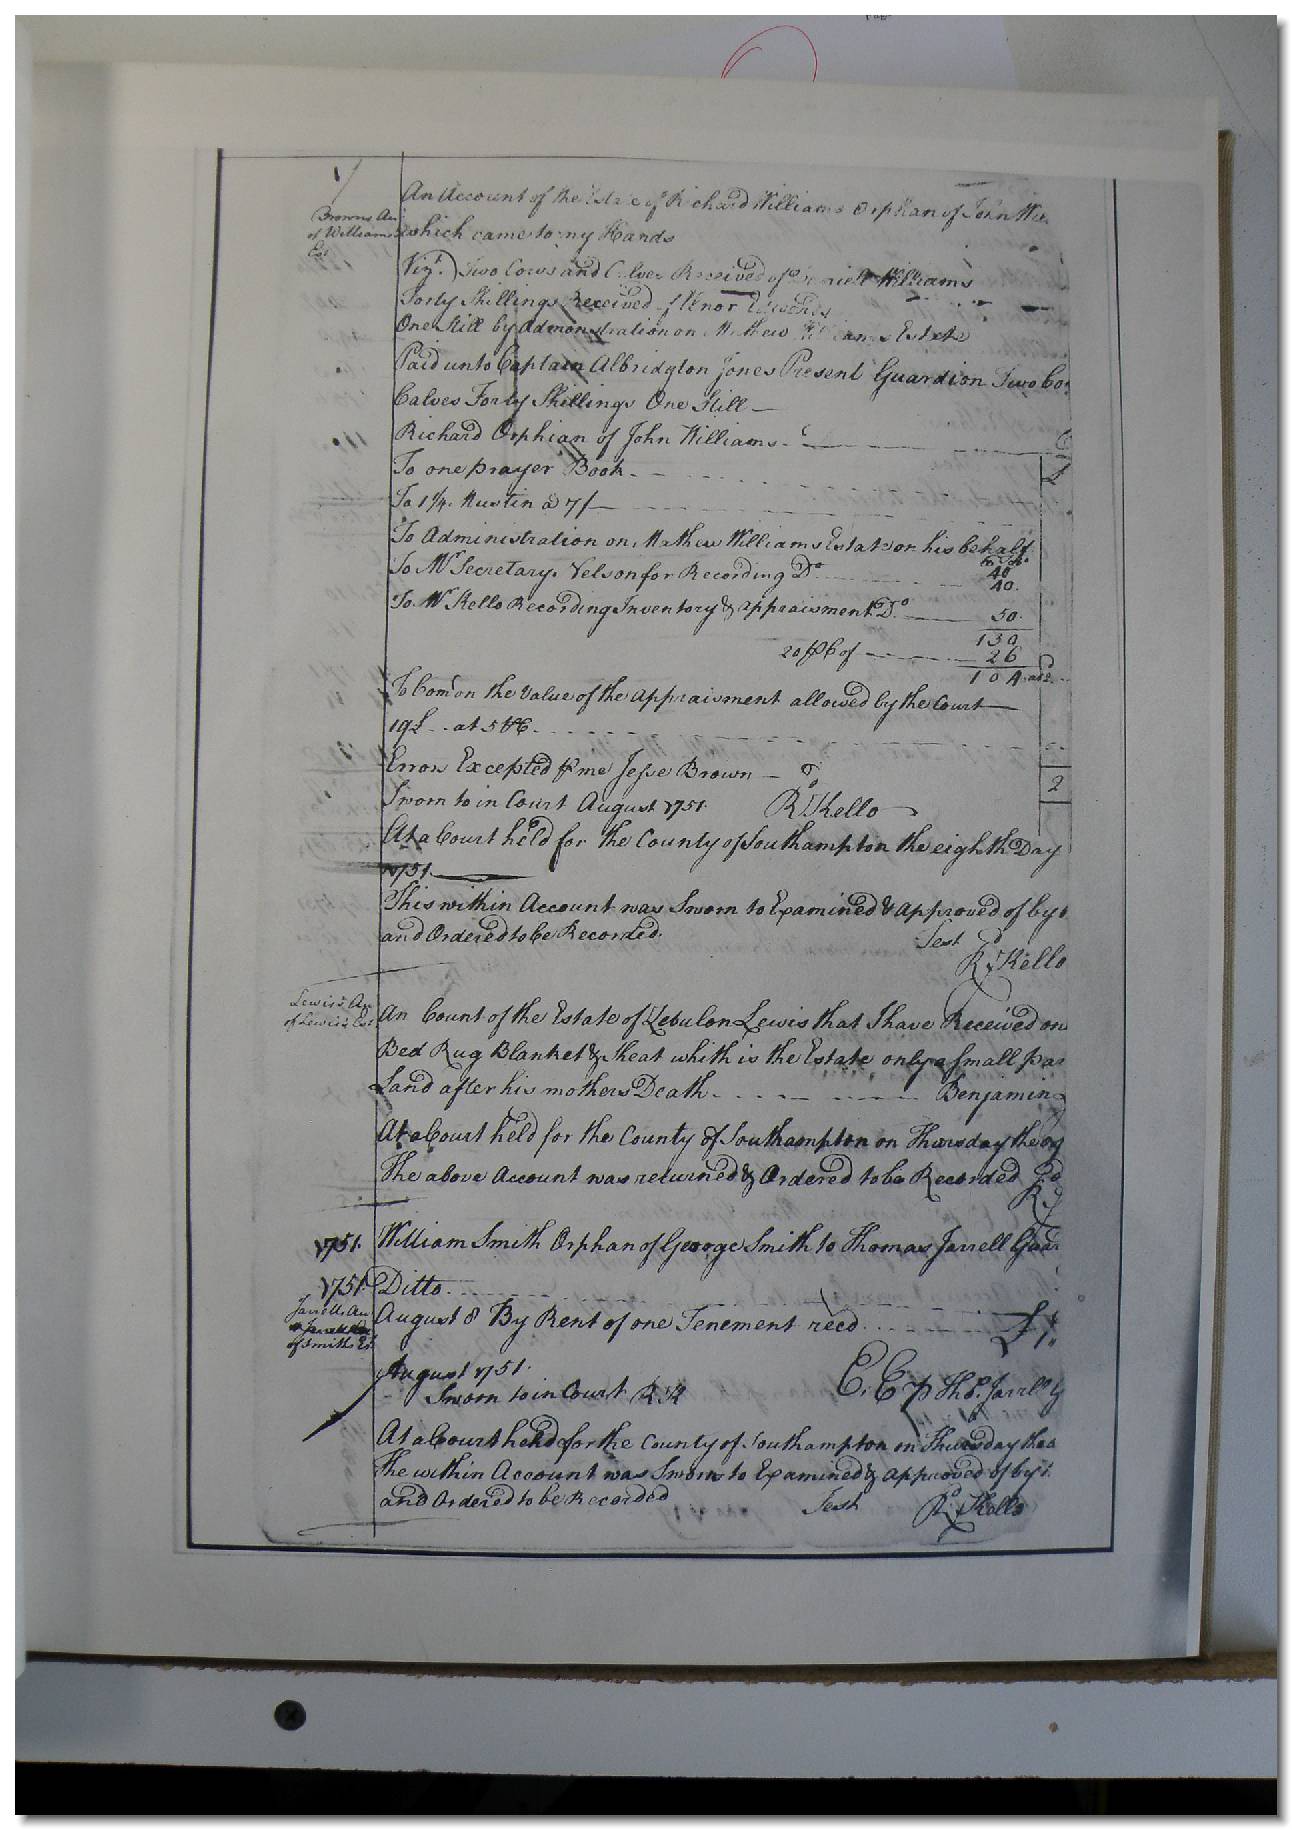 An Account of the Estate of Richard Williams Orphan of John
Browns
of Williams
Est
which came to my Hands
Vizt. Two Cows and Calves Received of Williams
Forty Shillings Received
One Still by Admonstration on Mathew Williams Estate
Paid unto Captain Albridgton Jones Present Guardion Two
Calves Forty Shillings One Still —
Richard Orphian of John Williams
To one prayer Book
To 1¼ Mustin @ 7/
To Administration on Mathew Williams Estate on his behalf
To Mr Secretary Nelson for Recording Do 40
40
To Mr Kello Recording Inventory & appraisment Do 50
130
20 pC of 26
104
To Comn on the Value of the appraisment allowed by the Court
19£ at 5 pC
Erron Excepted p me Jesse Brown
2
Sworn to in Court August 1751 Rd Kello
At a Court held for the County of Southampton the eighth Day
1751
This within Account was Sworn to Examined & approved of by
and Ordered to be Recorded Test
Rd Kello
Lewis's
of Lewis's Est
An Count of the Estate of Zebulon Lewis that I have Received on
Bed Rug Blanket & Sheat whith is the Estate only a Small
Land after his mothers Death Benjamin
At a Court held for the County of Southampton on Thursday the
The above Account was returned & Ordered to be Recorded
1751 William Smith Orphan of George Smith to Thomas Jarrell
1751 Ditto
Jarrells
of Smiths Est
August 8 By Rent of one Tenement recd £
August 1751
Sworn to in Court R K E. E p Tho. Jarrell
At a Court held for the County of Southampton on Thursday the
The within Account was Sworn to Examined & approved of by
and Ordered to be Recorded Test Rd Kello